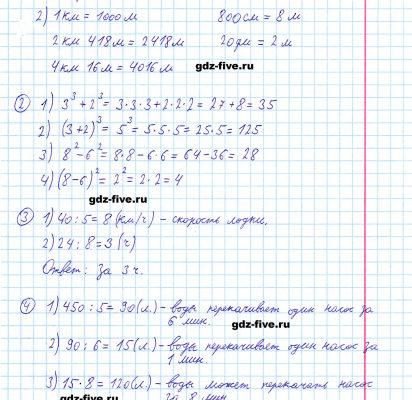 2) 1 км = 1000 м 800 см = 8 м
2 км 418 м = 2418 м 20 дм = 2 м
4 км 16 м = 4016 м
gdz-five.ru
② 1) 3³ + 2³ = 3·3·3 + 2·2·2 = 27 + 8 = 35
2) (3+2)³ = 5³ = 5·5·5 = 25·5 = 125
3) 8² - 6² = 8·8 - 6·6 = 64 - 36 = 28
4) (8-6)² = 2² = 2·2 = 4
gdz-five.ru
③ 1) 40 : 5 = 8 (км/ч) - скорость лодки.
2) 24 : 8 = 3 (ч)
Ответ: за 3 ч.
④ 1) 450 : 5 = 90 (л.) - воды перекачивает один насос за
6 мин.
gdz-five.ru
2) 90 : 6 = 15 (л.) - воды перекачивает один насос за
1 мин.
3) 15 · 8 = 120 (л.) - воды может перекачать насос
gdz-five.ru за 8 мин.